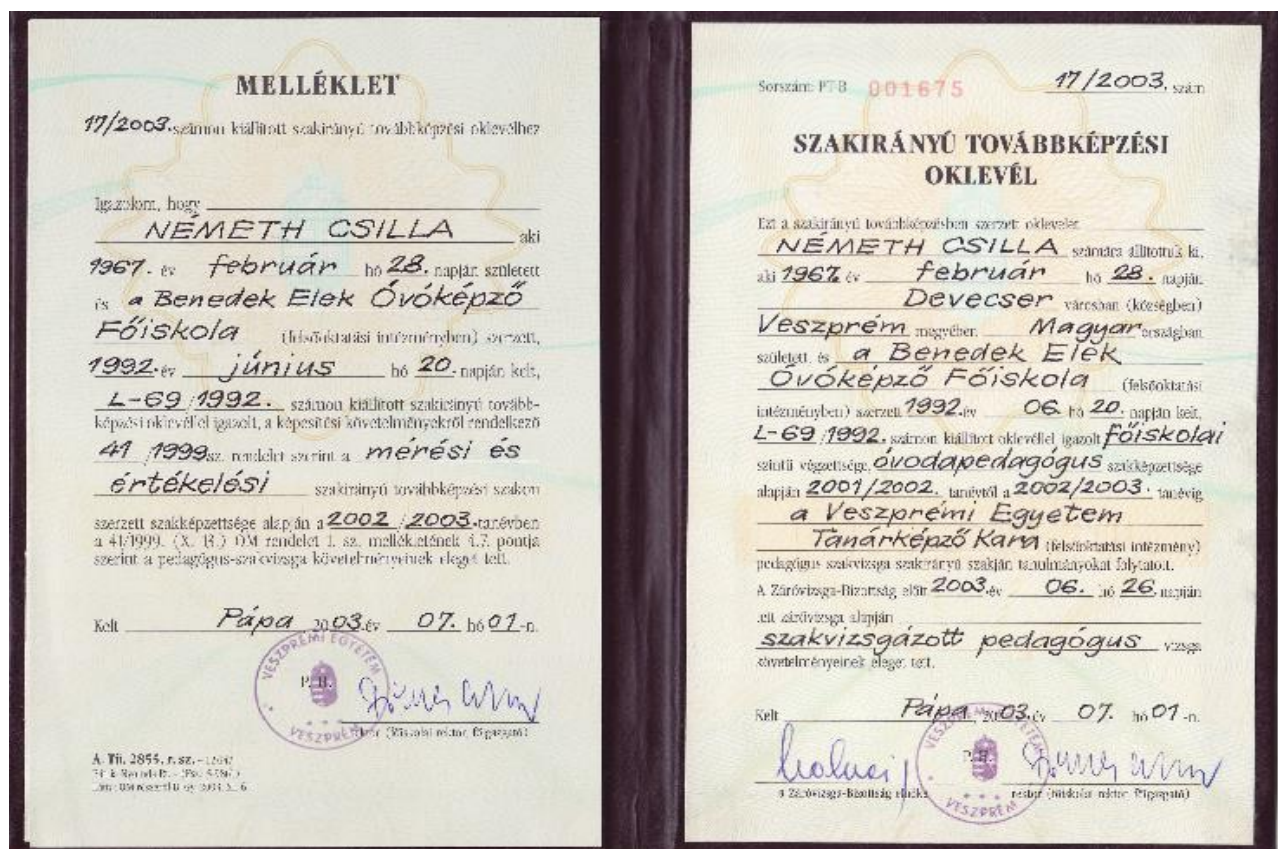 MELLÉKLET
17/2003. számon kiállított szakirányú továbbképzési oklevélhez
Igazolom, hogy
NÉMETH CSILLA aki
1967. év február hó 28. napján született
és a Benedek Elek Óvóképző
Főiskola (felsőoktatási intézményben) szerzett,
1992. év június hó 20. napján kelt,
L-69/1992. számon kiállított szakirányú tovább-
képzési oklevéllel igazolt, a képesítési követelményekről rendelkező
41/1999 sz. rendelet szerint a mérési és
értékelési szakirányú továbbképzési szakon
szerzett szakképzettsége alapján a 2002/2003. tanévben
a 41/1999. (X. 13.) OM rendelet 1. sz. mellékletének 4.7. pontja
szerint a pedagógus-szakvizsga követelményeinek eleget tett.
Kelt Pápa 2003. év 07. hó 01-n.
VESZPRÉMI EGYETEM
P. H.
VESZPRÉM
rektor (főiskolai rektor, főigazgató)
A. Tü. 2855. r. sz.
Sorszám: PT-B 001675 17/2003. szám
SZAKIRÁNYÚ TOVÁBBKÉPZÉSI
OKLEVÉL
Ezt a szakirányú továbbképzésben szerzett oklevelet
NÉMETH CSILLA számára állítottuk ki,
aki 1967. év február hó 28. napján
Devecser városban (községben)
Veszprém megyében Magyar országban
született, és a Benedek Elek
Óvóképző Főiskola (felsőoktatási
intézményben) szerzett 1992. év 06. hó 20. napján kelt,
L-69/1992. számon kiállított oklevéllel igazolt főiskolai
szintű végzettsége, óvodapedagógus szakképzettsége
alapján 2001/2002. tanévtől a 2002/2003. tanévig
a Veszprémi Egyetem
Tanárképző Kara (felsőoktatási intézmény)
pedagógus szakvizsga szakirányú szakján tanulmányokat folytatott.
A Záróvizsga-Bizottság előtt 2003. év 06. hó 26. napján
tett záróvizsga alapján
szakvizsgázott pedagógus vizsga
követelményeinek eleget tett.
Kelt Pápa 2003. év 07. hó 01-n.
VESZPRÉMI EGYETEM
P. H.
VESZPRÉM
a Záróvizsga-Bizottság elnöke rektor (főiskolai rektor, főigazgató)